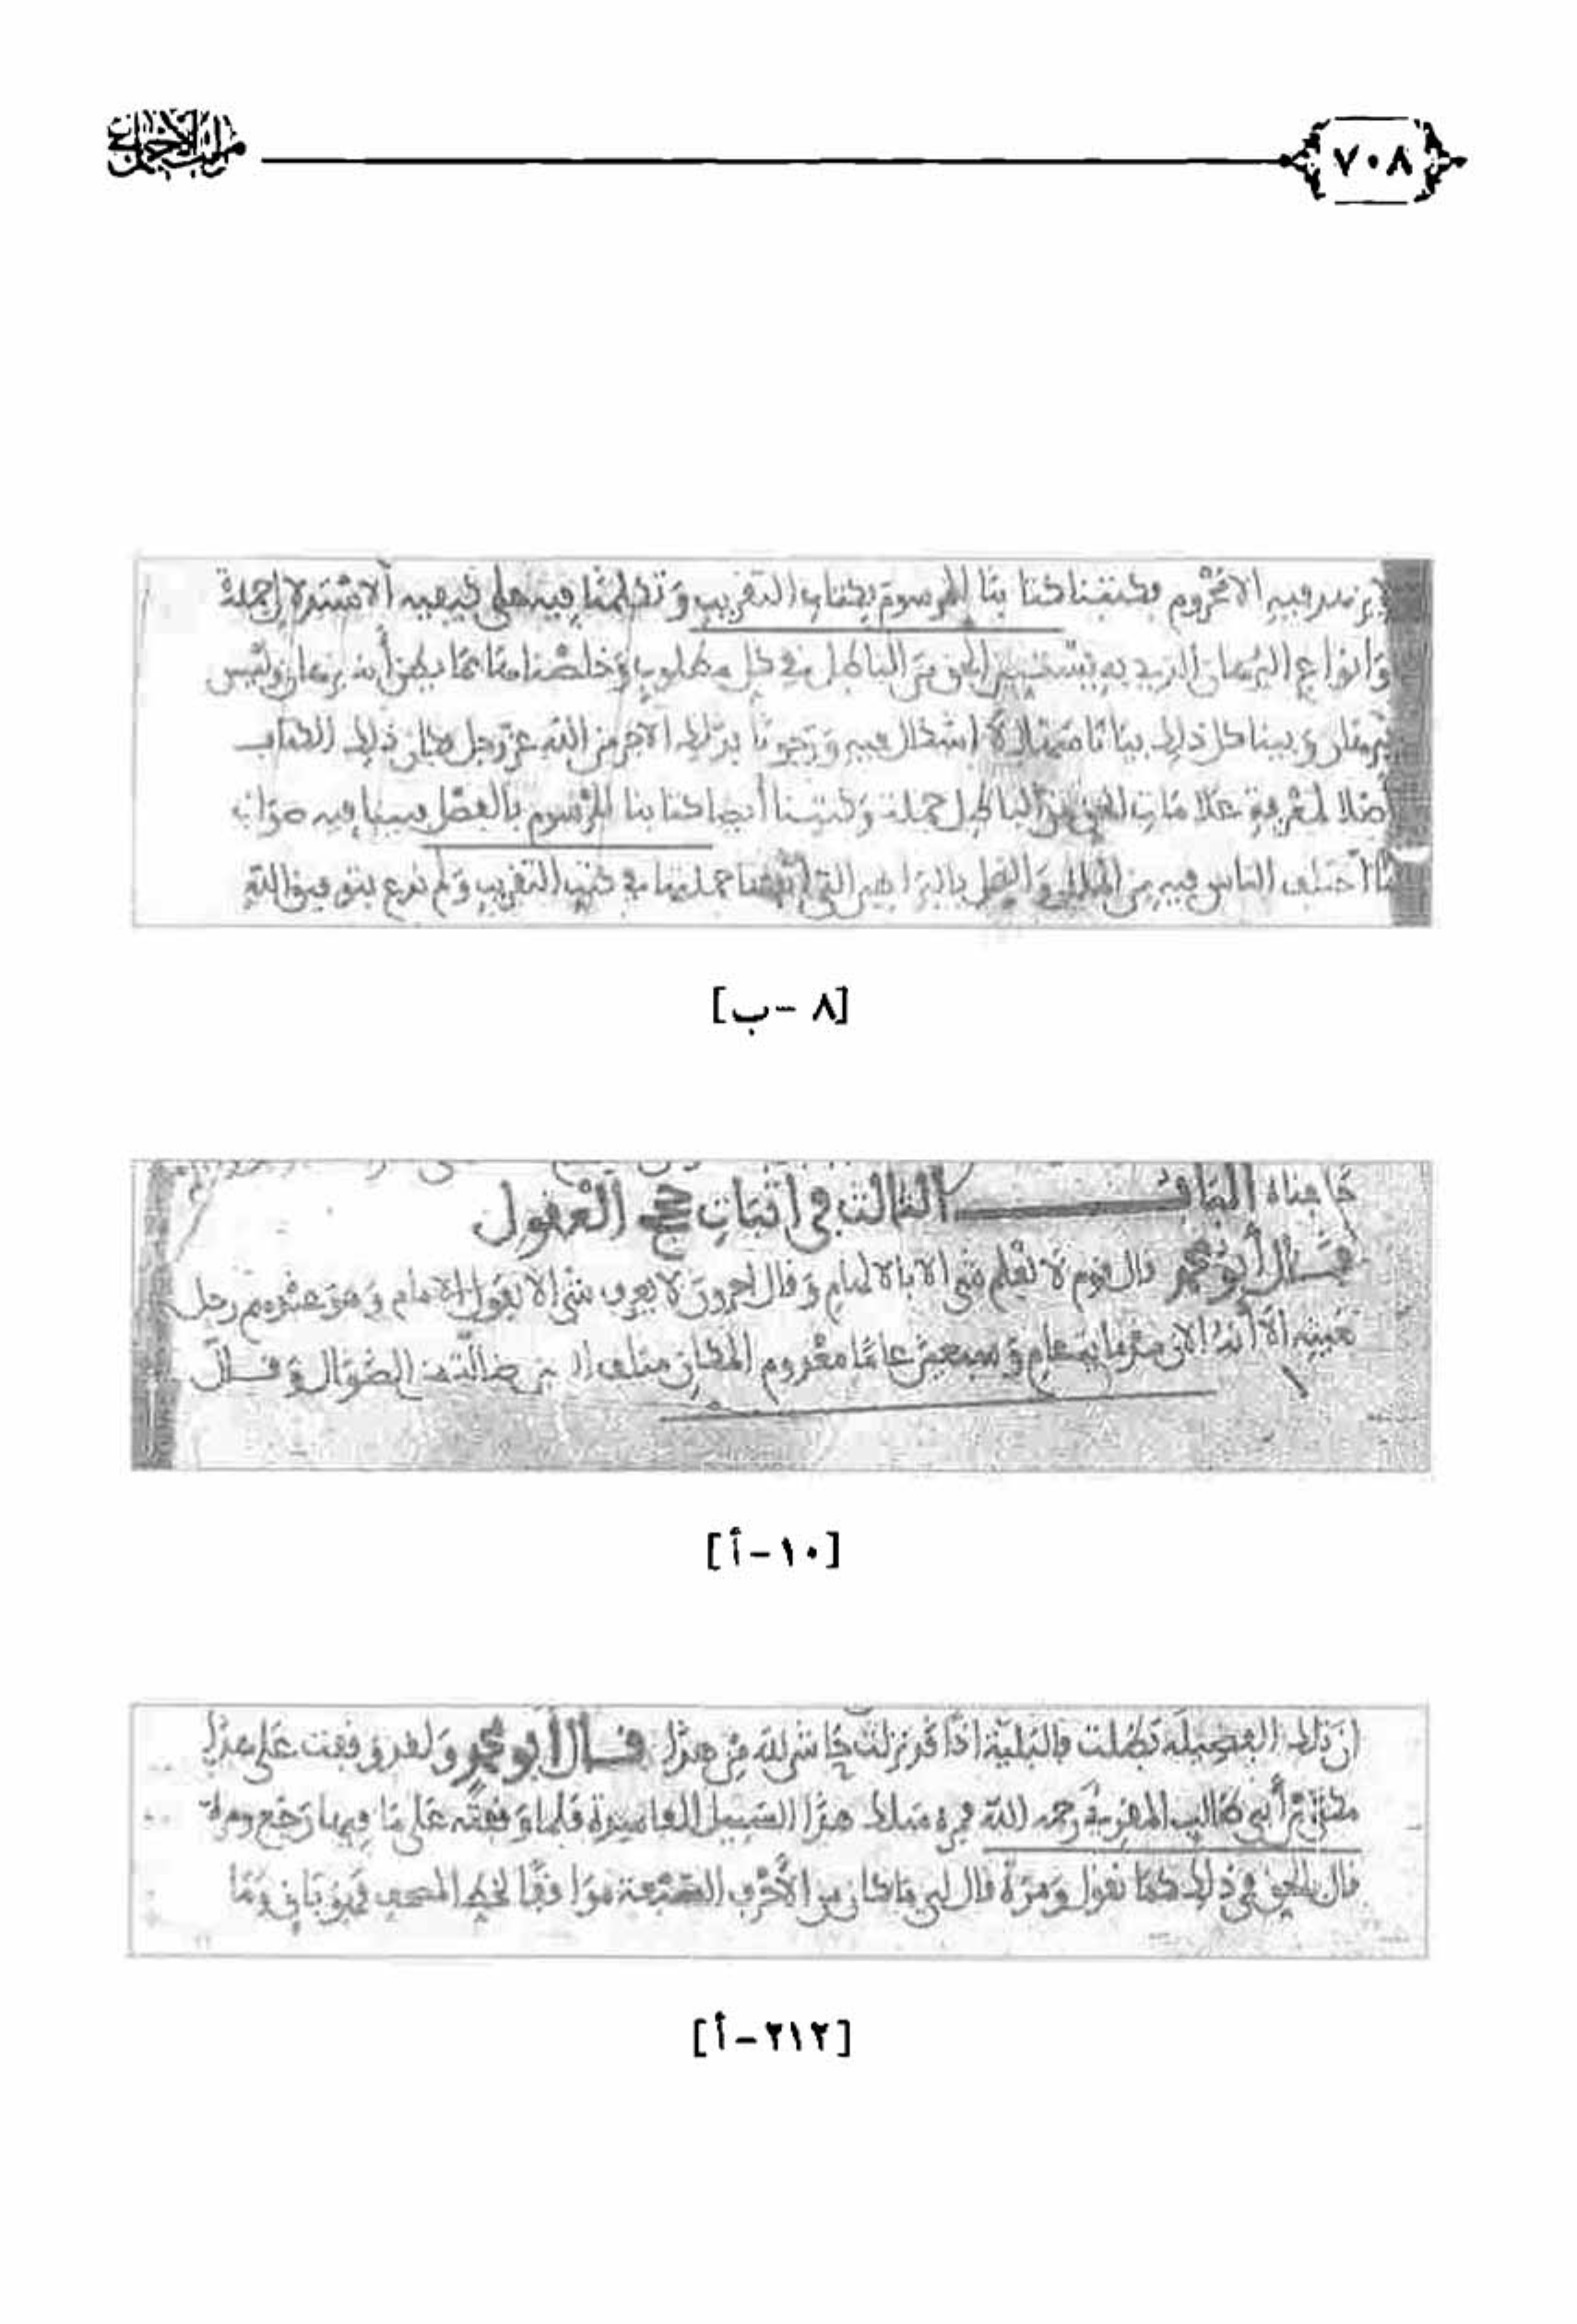 مراتب الإجماع
٧٠٨
فكتبنا كتابنا المرسوم بكتاب التقريب وتكلمنا فيه على كيفية الاستدلال جملة
وأنواع البرهان الذي به يستبين الحق من الباطل في كل مطلوب وخلصناها مما يظن أنه برهان وليس
ببرهان وبينا كل ذلك بيانا سهلا لا إشكال فيه ورجونا بذلك الأجر من الله عز وجل فكان ذلك الكتاب
أصلا لمعرفة علامات الحق من الباطل جملة وكتبنا أيضا كتابنا المرسوم بالفصل فبينا فيه صواب
ما اختلف الناس فيه من الملل والنحل بالبراهين التي أثبتنا جملتها في كتاب التقريب ولم ندع بتوفيق الله
[٨ – ب]
الباب الثالث في إثبات حجج العقول
قال أبو محمد قال قوم لا نعلم شيئا إلا بالإلهام وقال آخرون لا يعرف شيء إلا بقول الإمام وهو عندهم رجل
بعينه إلا أنه الآن مائة عام وسبعين عاما معدوم المكان متلف العين ضالة من الضوال وقال
[١٠ – أ]
إن تلك الفضيلة بطلت فالبلية إذا قد نزلت حاش لله من هذا قال أبو محمد ولقد وقفت على هذا
مكي بن أبي طالب المقرئ رحمه الله فمرة سلك هذا السبيل الفاسدة فلما وقفته على ما فيها رجع ومرة
قال بالحق في ذلك كما نقول ومرة قال لي ما كان من الأحرف السبعة موافقا لخط المصحف فهو باق وما
[٢١٢ – أ]